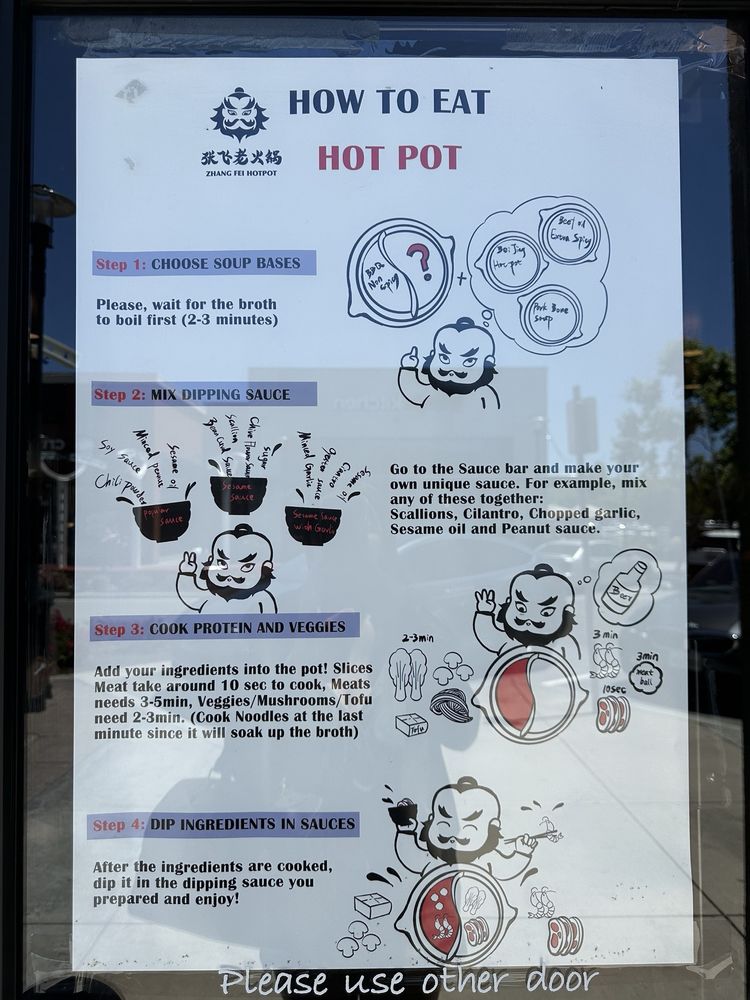 HOW TO EAT
HOT POT
张飞老火锅
ZHANG FEI HOTPOT
Step 1: CHOOSE SOUP BASES
Please, wait for the broth
to boil first (2-3 minutes)
Non
spicy
?
+
Beef oil
Extra Spicy
Bei Jing
Hot pot
Pork Bone
soup
Step 2: MIX DIPPING SAUCE
Chili powder
Soy sauce
Minced peanut
Sesame oil
popular
sauce
Scallion
Chive Flower sauce
sugar
Sesame
sauce
Minced Garlic
Oyster sauce
Cilantro
Sesame oil
Sesame Sauce
with Garlic
Go to the Sauce bar and make your
own unique sauce. For example, mix
any of these together:
Scallions, Cilantro, Chopped garlic,
Sesame oil and Peanut sauce.
Step 3: COOK PROTEIN AND VEGGIES
Add your ingredients into the pot! Slices
Meat take around 10 sec to cook, Meats
needs 3-5min, Veggies/Mushrooms/Tofu
need 2-3min. (Cook Noodles at the last
minute since it will soak up the broth)
2-3min
Tofu
Beer
3min
3min
meat
ball
10sec
Step 4: DIP INGREDIENTS IN SAUCES
After the ingredients are cooked,
dip it in the dipping sauce you
prepared and enjoy!
Please use other door